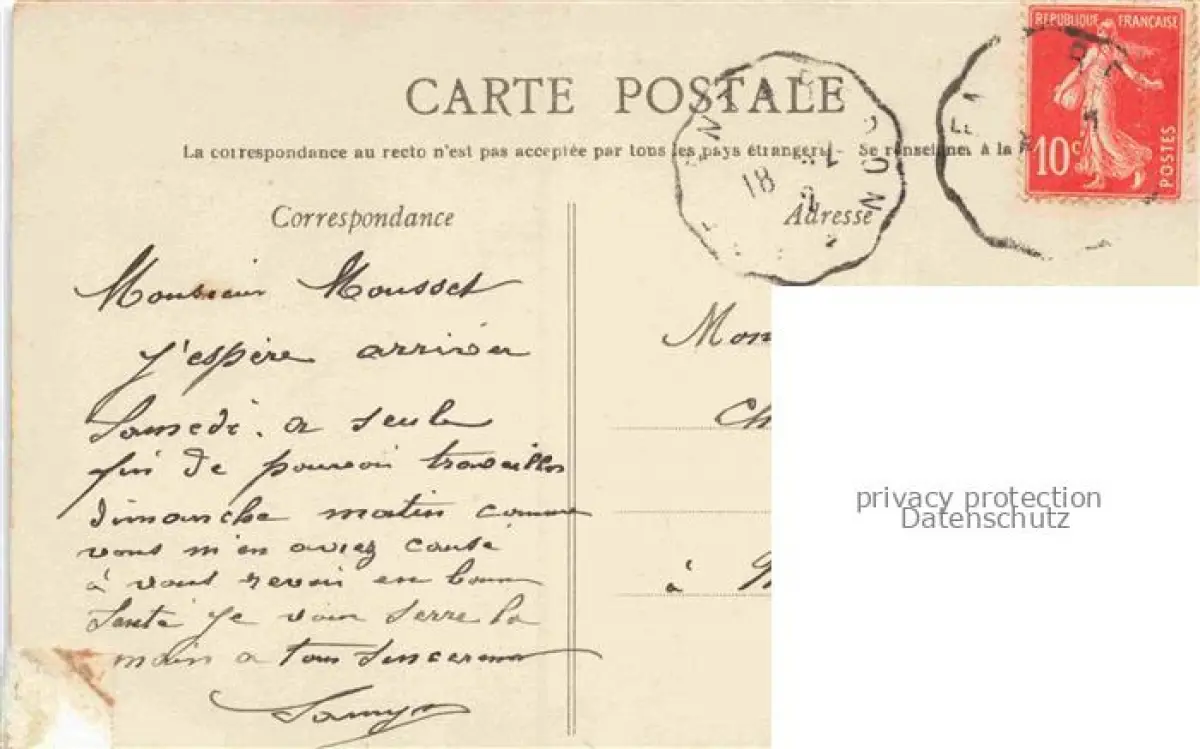 CARTE POSTALE
La correspondance au recto n'est pas acceptée par tous les pays étrangers - Se renseigner à la
RÉPUBLIQUE FRANÇAISE
10c
POSTES
18
Correspondance
Adresse
Monsieur Mousset
J'espère arriver
Samedi. a seule
fin de pouvoir travailler
dimanche matin comme
vous m'en aviez causé
à vous revoir en bonne
Santé je vous serre la
main a tous Sincerement
Mon
Ch
à
privacy protection
Datenschutz